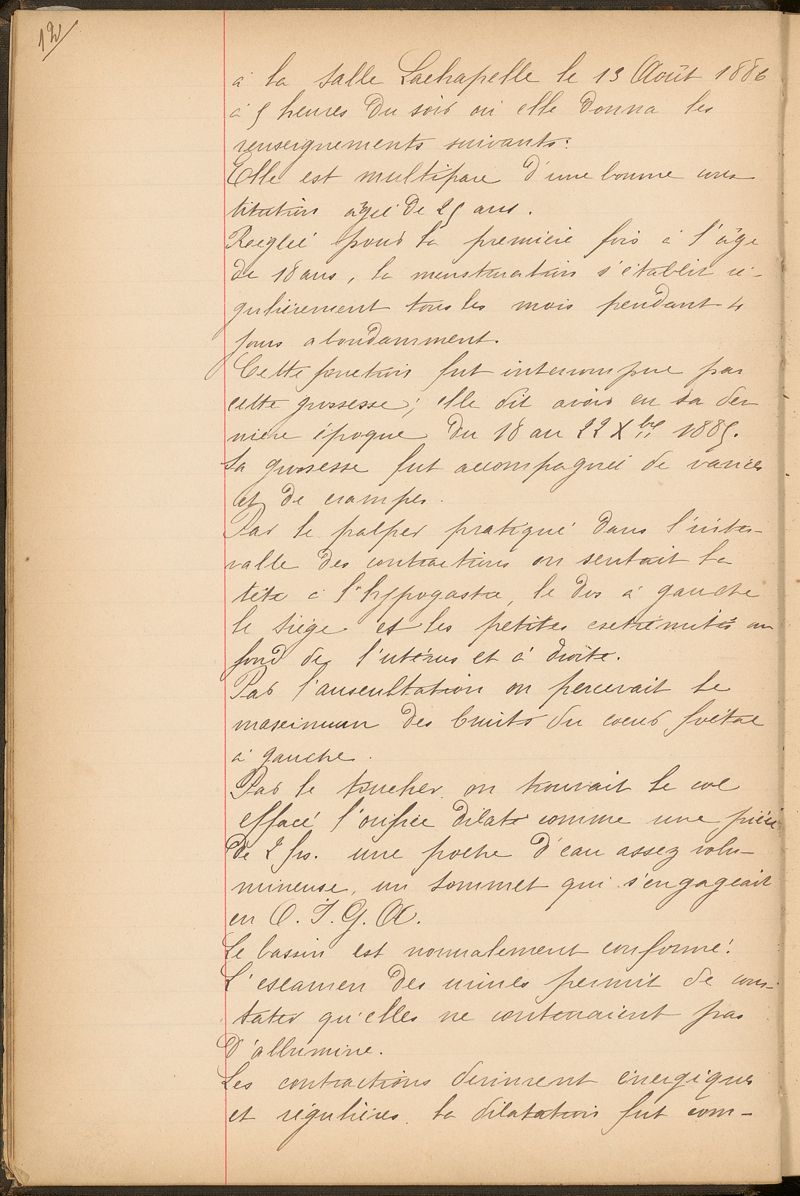 12
à la salle Lachapelle le 13 Août 1886
à 5 heures du soir où elle donna les
renseignements suivants:
Elle est multipare d'une bonne cons
titution agée de 25 ans.
Reglée pour la première fois à l'âge
de 18 ans, la menstruation s'établit ré-
gulièrement tous les mois pendant 4
jours abondamment.
Cette fonction fut interrompue par
cette grossesse; elle dit avoir eu sa der
nière époque du 18 au 22 Xbre 1885.
La grossesse fut accompagnée de varices
et de crampes.
Par le palper pratiqué dans l'inter-
valle des contractions on sentait la
tête à l'hypogastre, le dos à gauche
le siège et les petites extrémités au
fond de l'utérus et à droite.
Par l'auscultation on percevait le
maximum des bruits du coeur foetal
à gauche.
Par le toucher on trouvait le col
effacé l'orifice dilaté comme une pièce
de 2 frs. une poche d'eau assez volu-
mineuse, un sommet qui s'engageait
en O. I. G. A.
Le bassin est normalement conformé.
L'examen des urines permit de cons-
tater qu'elles ne contenaient pas
d'allumine.
Les contractions devinrent énergiques
et régulières, la dilatation fut com-